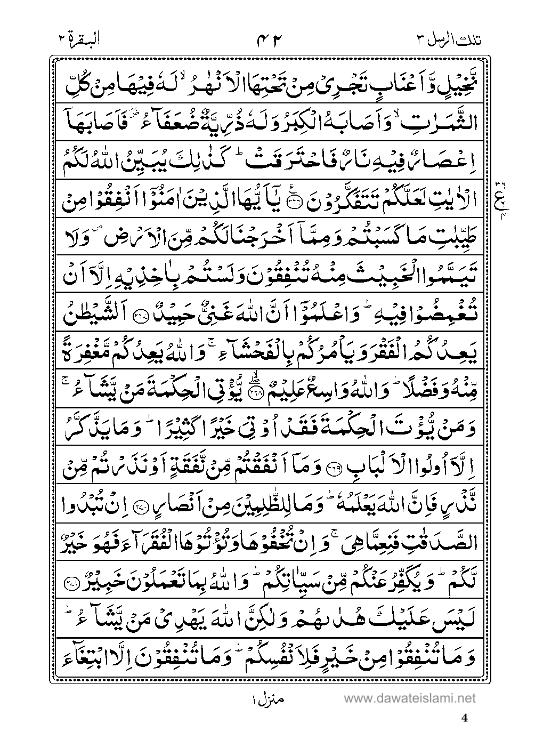 تلك الرسل ٣ ٤٢ البقرة ٢
نَّخِيْلٍ وَّاَعْنَابٍ تَجْرِيْ مِنْ تَحْتِهَا الْاَنْهٰرُ ۙ لَهٗ فِيْهَا مِنْ كُلِّ
الثَّمَرٰتِ ۙ وَاَصَابَهُ الْكِبَرُ وَلَهٗ ذُرِّيَّةٌ ضُعَفَآءُ ۖ فَاَصَابَهَآ
اِعْصَارٌ فِيْهِ نَارٌ فَاحْتَرَقَتْ ؕ كَذٰلِكَ يُبَيِّنُ اللّٰهُ لَكُمُ
الْاٰيٰتِ لَعَلَّكُمْ تَتَفَكَّرُوْنَ ﴿۲۶۶﴾ يٰۤاَيُّهَا الَّذِيْنَ اٰمَنُوْۤا اَنْفِقُوْا مِنْ
طَيِّبٰتِ مَا كَسَبْتُمْ وَمِمَّآ اَخْرَجْنَا لَكُمْ مِّنَ الْاَرْضِ ۪ وَلَا
تَيَمَّمُوا الْخَبِيْثَ مِنْهُ تُنْفِقُوْنَ وَلَسْتُمْ بِاٰخِذِيْهِ اِلَّآ اَنْ
تُغْمِضُوْا فِيْهِ ؕ وَاعْلَمُوْۤا اَنَّ اللّٰهَ غَنِيٌّ حَمِيْدٌ ﴿۲۶۷﴾ اَلشَّيْطٰنُ
يَعِدُكُمُ الْفَقْرَ وَيَاْمُرُكُمْ بِالْفَحْشَآءِ ۚ وَاللّٰهُ يَعِدُكُمْ مَّغْفِرَةً
مِّنْهُ وَفَضْلًا ؕ وَاللّٰهُ وَاسِعٌ عَلِيْمٌ ﴿۲۶۸﴾ يُّؤْتِي الْحِكْمَةَ مَنْ يَّشَآءُ ۚ
وَمَنْ يُّؤْتَ الْحِكْمَةَ فَقَدْ اُوْتِيَ خَيْرًا كَثِيْرًا ؕ وَمَا يَذَّكَّرُ
اِلَّآ اُولُوا الْاَلْبَابِ ﴿۲۶۹﴾ وَمَآ اَنْفَقْتُمْ مِّنْ نَّفَقَةٍ اَوْ نَذَرْتُمْ مِّنْ
نَّذْرٍ فَاِنَّ اللّٰهَ يَعْلَمُهٗ ؕ وَمَا لِلظّٰلِمِيْنَ مِنْ اَنْصَارٍ ﴿۲۷۰﴾ اِنْ تُبْدُوا
الصَّدَقٰتِ فَنِعِمَّا هِيَ ۚ وَاِنْ تُخْفُوْهَا وَتُؤْتُوْهَا الْفُقَرَآءَ فَهُوَ خَيْرٌ
لَّكُمْ ؕ وَيُكَفِّرُ عَنْكُمْ مِّنْ سَيِّاٰتِكُمْ ؕ وَاللّٰهُ بِمَا تَعْمَلُوْنَ خَبِيْرٌ ﴿۲۷۱﴾
لَيْسَ عَلَيْكَ هُدٰىهُمْ وَلٰكِنَّ اللّٰهَ يَهْدِيْ مَنْ يَّشَآءُ ؕ
وَمَا تُنْفِقُوْا مِنْ خَيْرٍ فَلِاَنْفُسِكُمْ ؕ وَمَا تُنْفِقُوْنَ اِلَّا ابْتِغَآءَ
منزل ١
www.dawateislami.net
4